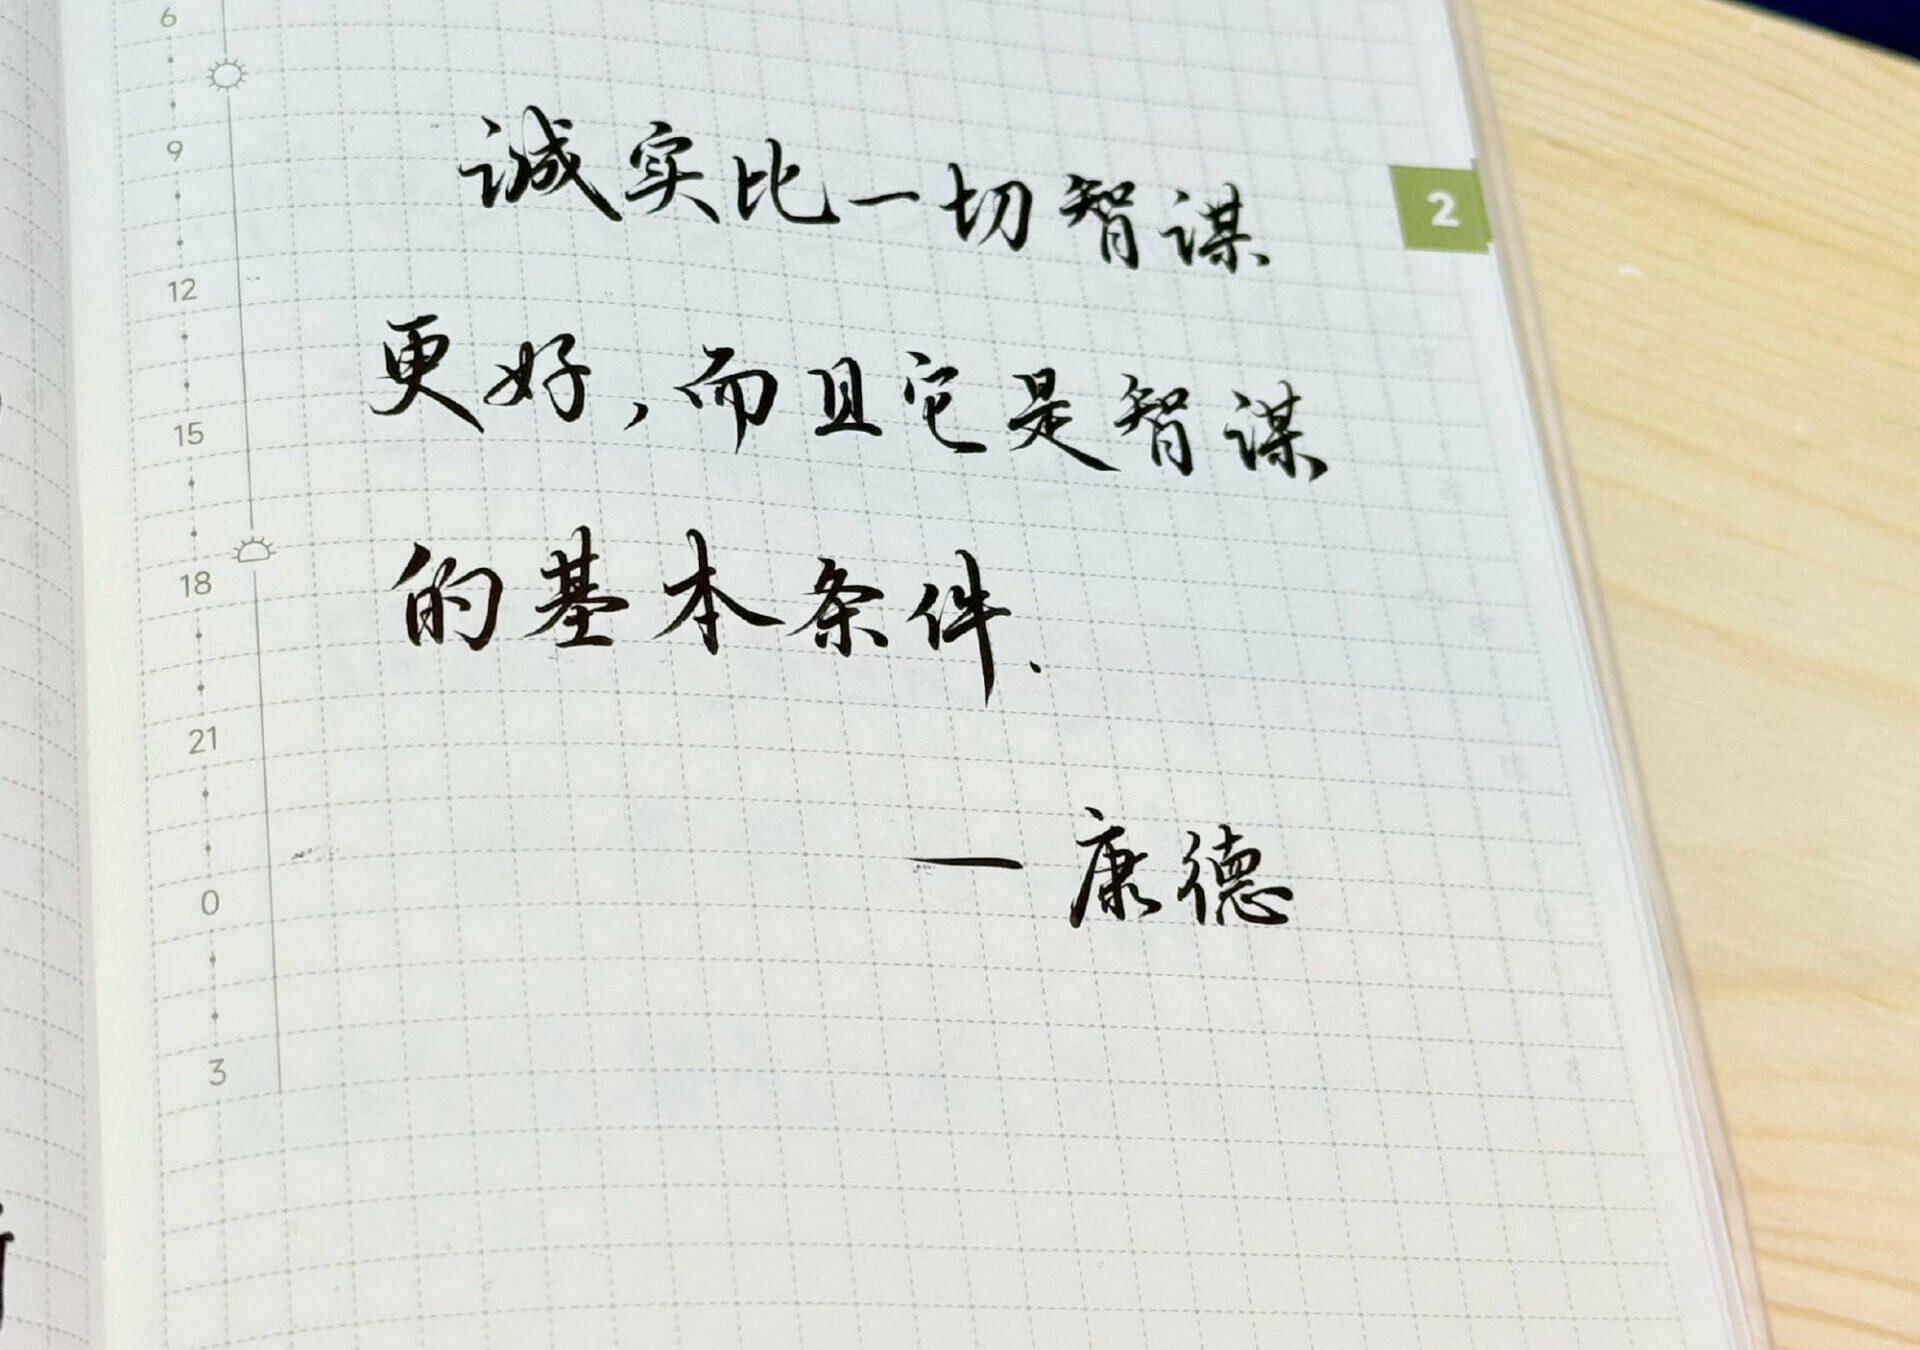 6
9
12
15
18
21
0
3
2
诚实比一切智谋
更好,而且它是智谋
的基本条件.
—康德